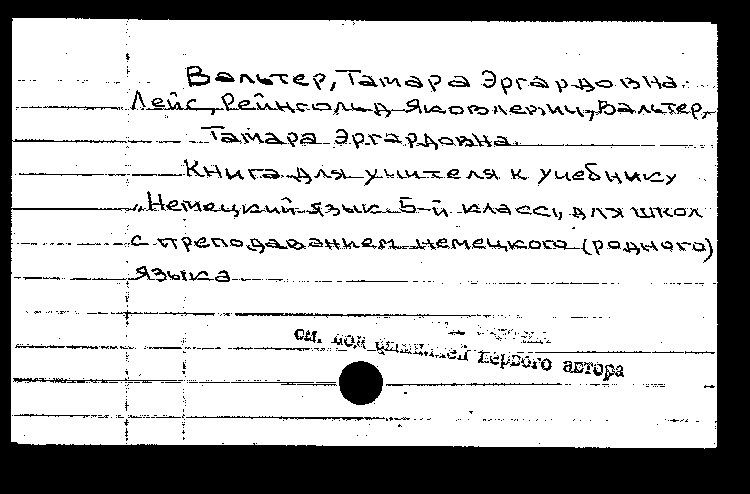 Вальтер, Тамара Эргардовна.
Лейс, Рейнгольд Яковлевич, Вальтер,
Тамара Эргардовна.
Книга для учителя к учебнику
„Немецкий язык 5-й класс", для школ
с преподаванием немецкого (родного)
языка
см. под фамилией первого автора